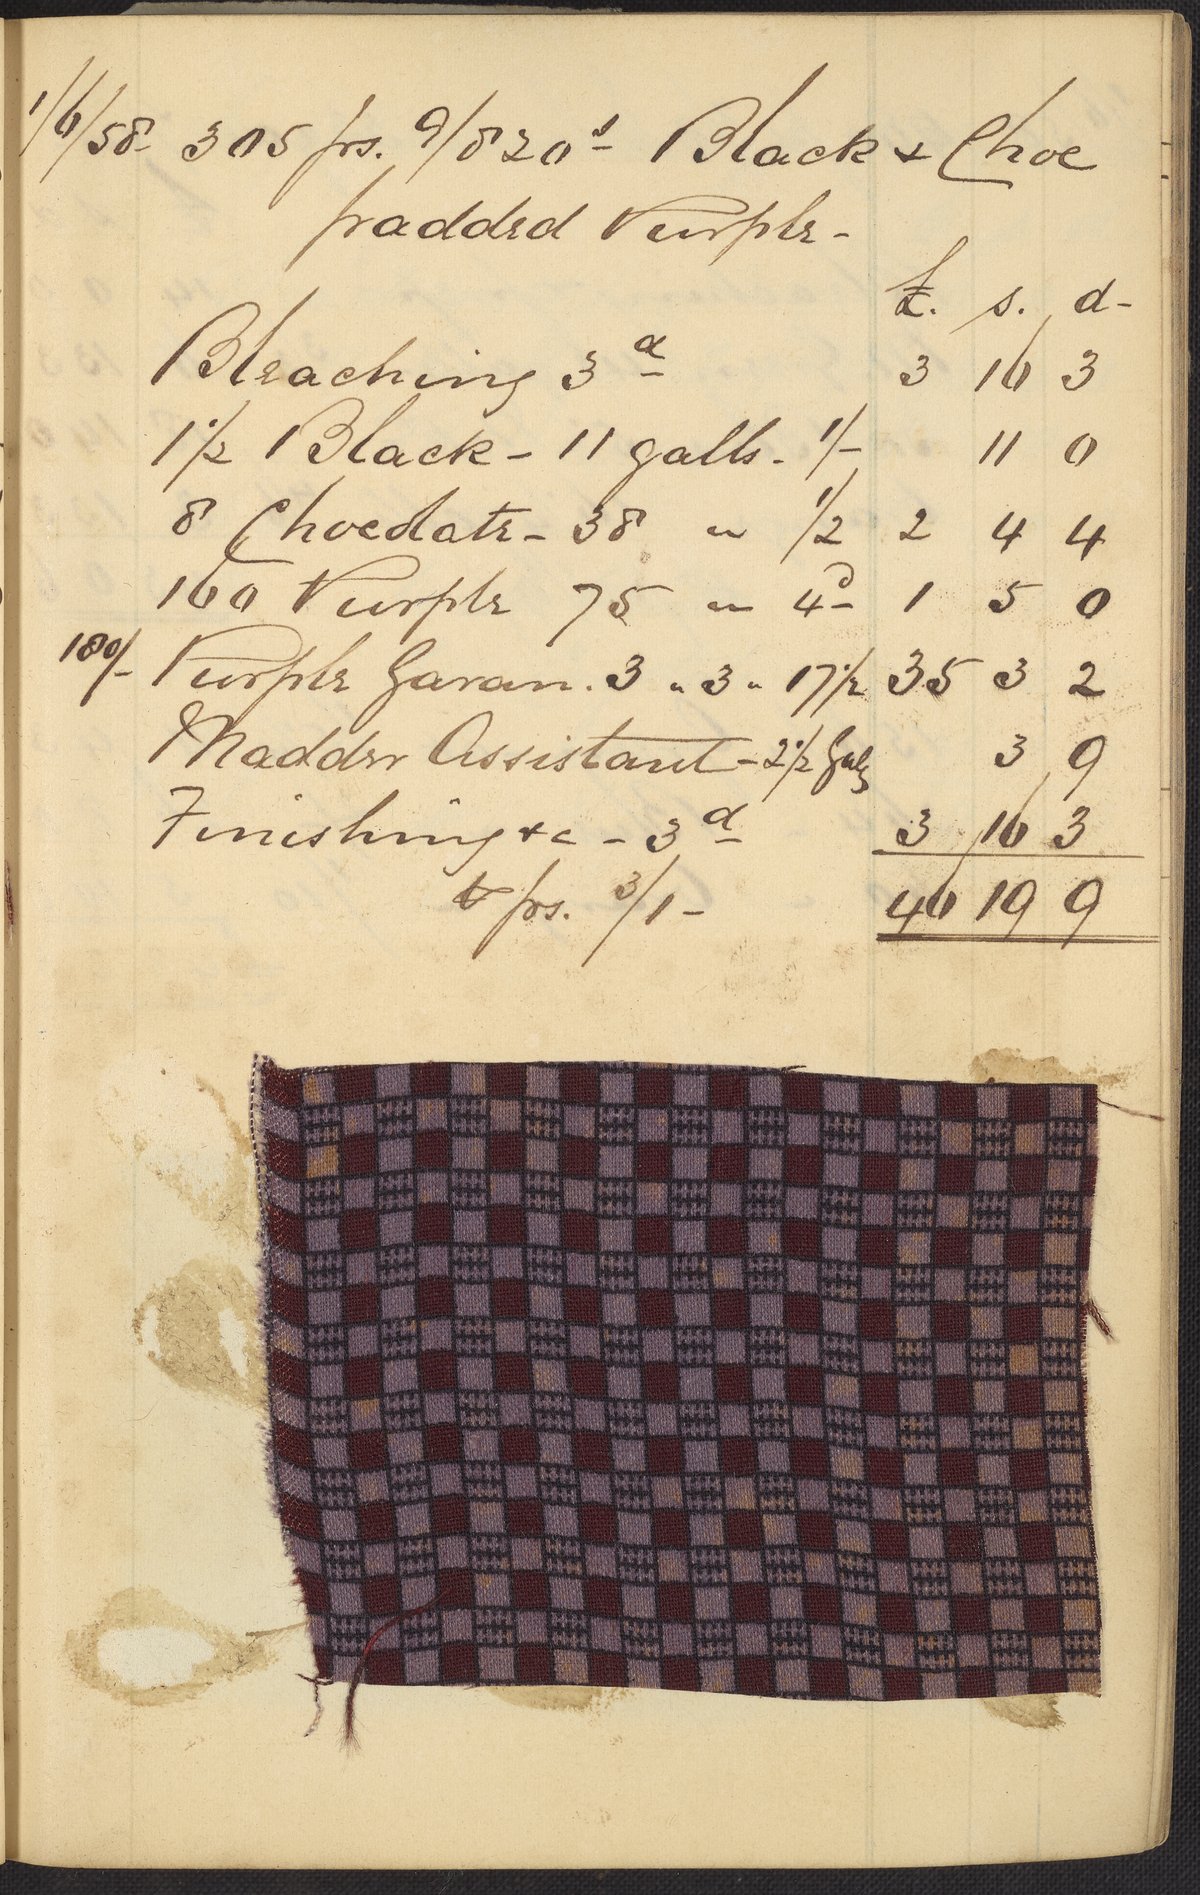 1/6/58 305 ps. 9/8 20s Black & Choc
padded Purple -
£. s. d-
Bleaching 3d 3 16 3
1 1/2 Black - 11 galls. 1/- 11 0
8 Chocolate - 38 " 1/2 2 4 4
160 Purple 75 " 4d 1 5 0
180/- Purple Garan. 3 " 3 " 17 1/2 35 3 2
Madder Assistant - 2 1/2 Galls 3 9
Finishing &c - 3d 3 16 3
ps. 3/1 - 46 19 9